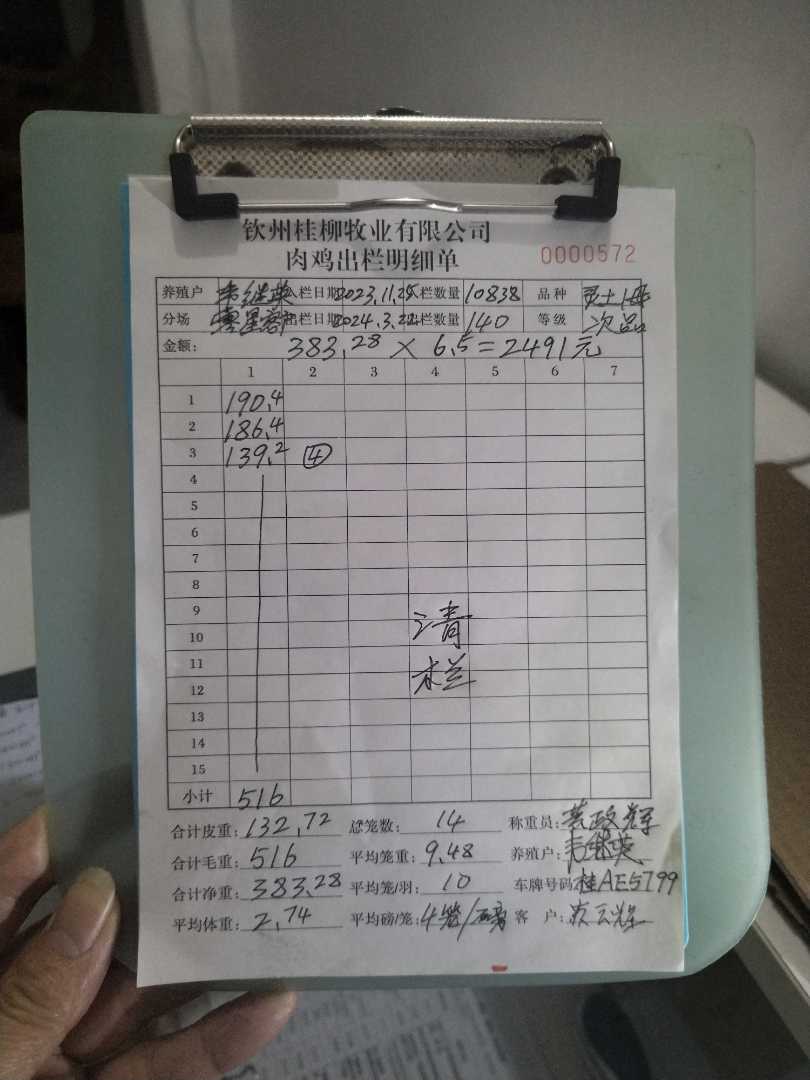 钦州桂柳牧业有限公司
0000572
肉鸡出栏明细单
养殖户 韦继英 入栏日期 2023.11.25 入栏数量 10838 品种 灵土1号
分场 出栏日期 2024.3.22 出栏数量 140 等级 次品
金额: 383.28 × 6.5 = 2491元
1 2 3 4 5 6 7
1 190.4
2 186.4
3 139.2 ④
4
5
6
7
8
9
10
11
12
13
14
15
清
栏
小计 516
合计皮重: 132.72 总笼数: 14 称重员: 黄政辉
合计毛重: 516 平均笼重: 9.48 养殖户: 韦继英
合计净重: 383.28 平均笼/羽: 10 车牌号码: 桂AE5799
平均体重: 2.74 平均磅/笼: 4笼/磅 客 户: